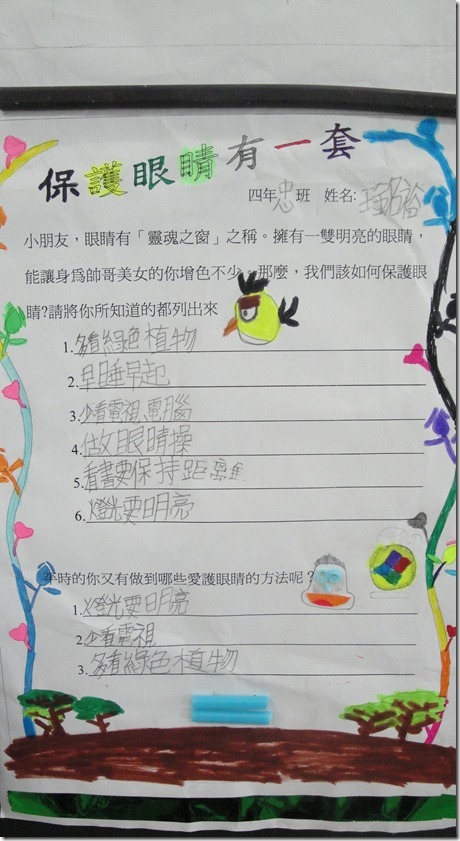 保護眼睛有一套
四年忠班 姓名:
小朋友，眼睛有「靈魂之窗」之稱。擁有一雙明亮的眼睛，
能讓身為帥哥美女的你增色不少。那麼，我們該如何保護眼
睛?請將你所知道的都列出來
1.多看綠色植物
2.早睡早起
3.少看電視電腦
4.做眼睛操
5.看書要保持距離
6.燈光要明亮
平時的你又有做到哪些愛護眼睛的方法呢？
1.燈光要明亮
2.少看電視
3.多看綠色植物